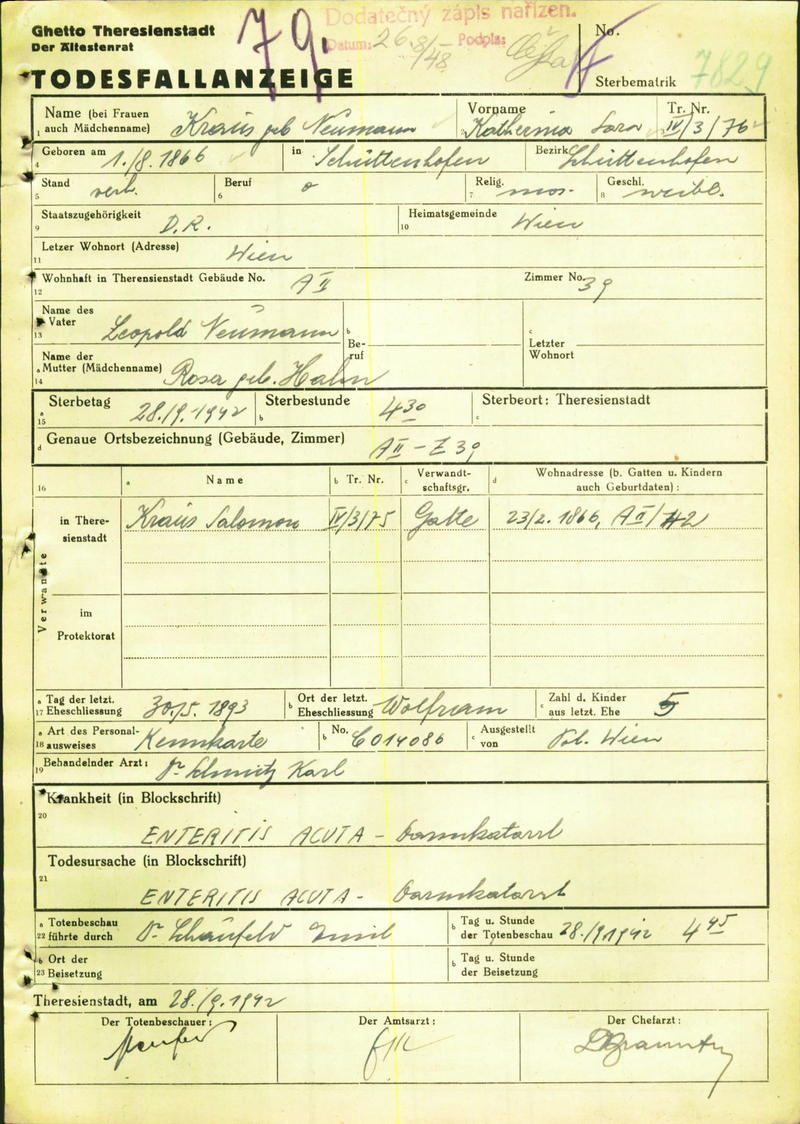 Ghetto Theresienstadt
Der Ältestenrat
79.
Dodatečný zápis nařízen.
Datum: 26/8/48 Podpis:
No.
TODESFALLANZEIGE
Sterbematrik 7829
Name (bei Frauen
1 auch Mädchenname) Kraus geb Neumann
Vorname
2 Katherina Sara
Tr. Nr.
3 IV/3/76
4 Geboren am 1./8. 1866 in Schüttenhofen Bezirk Schüttenhofen
5 Stand verh. 6 Beruf o 7 Relig. mos. 8 Geschl. weibl.
9 Staatszugehörigkeit D.R. 10 Heimatsgemeinde Wien
11 Letzer Wohnort (Adresse) Wien
12 Wohnhaft in Therensienstadt Gebäude No. A II Zimmer No. 39
13 a Name des Vater Leopold Neumann b Be-ruf c Letzter Wohnort
14 a Name der Mutter (Mädchenname) Rosa geb. Hahn
15 a Sterbetag 28./9. 1942 b Sterbestunde 4 30 c Sterbeort: Theresienstadt
d Genaue Ortsbezeichnung (Gebäude, Zimmer) A II – Z 39
16 a Name b Tr. Nr. c Verwandt-schaftsgr. d Wohnadresse (b. Gatten u. Kindern auch Geburtdaten) :
Verwandte
in There-sienstadt Kraus Salomon IV/3/75 Gatte 23/2. 1866, A II/
im Protektorat
17 a Tag der letzt. Eheschliessung 30./5. 1893 b Ort der letzt. Eheschliessung Wolfram c Zahl d. Kinder aus letzt. Ehe 5
18 a Art des Personal-ausweises Kennkarte b No. C014086 c Ausgestellt von Pol. Wien
19 Behandelnder Arzt: Dr Schmitz Karl
Krankheit (in Blockschrift)
20 ENTERITIS ACUTA – Darmkatarrh
Todesursache (in Blockschrift)
21 ENTERITIS ACUTA – Darmkatarrh
22 a Totenbeschau führte durch Dr Emil b Tag u. Stunde der Totenbeschau 28./9 1942 4 45
23 b Ort der Beisetzung b Tag u. Stunde der Beisetzung
Theresienstadt, am 28./9. 1942
Der Totenbeschauer: Der Amtsarzt: Der Chefarzt: